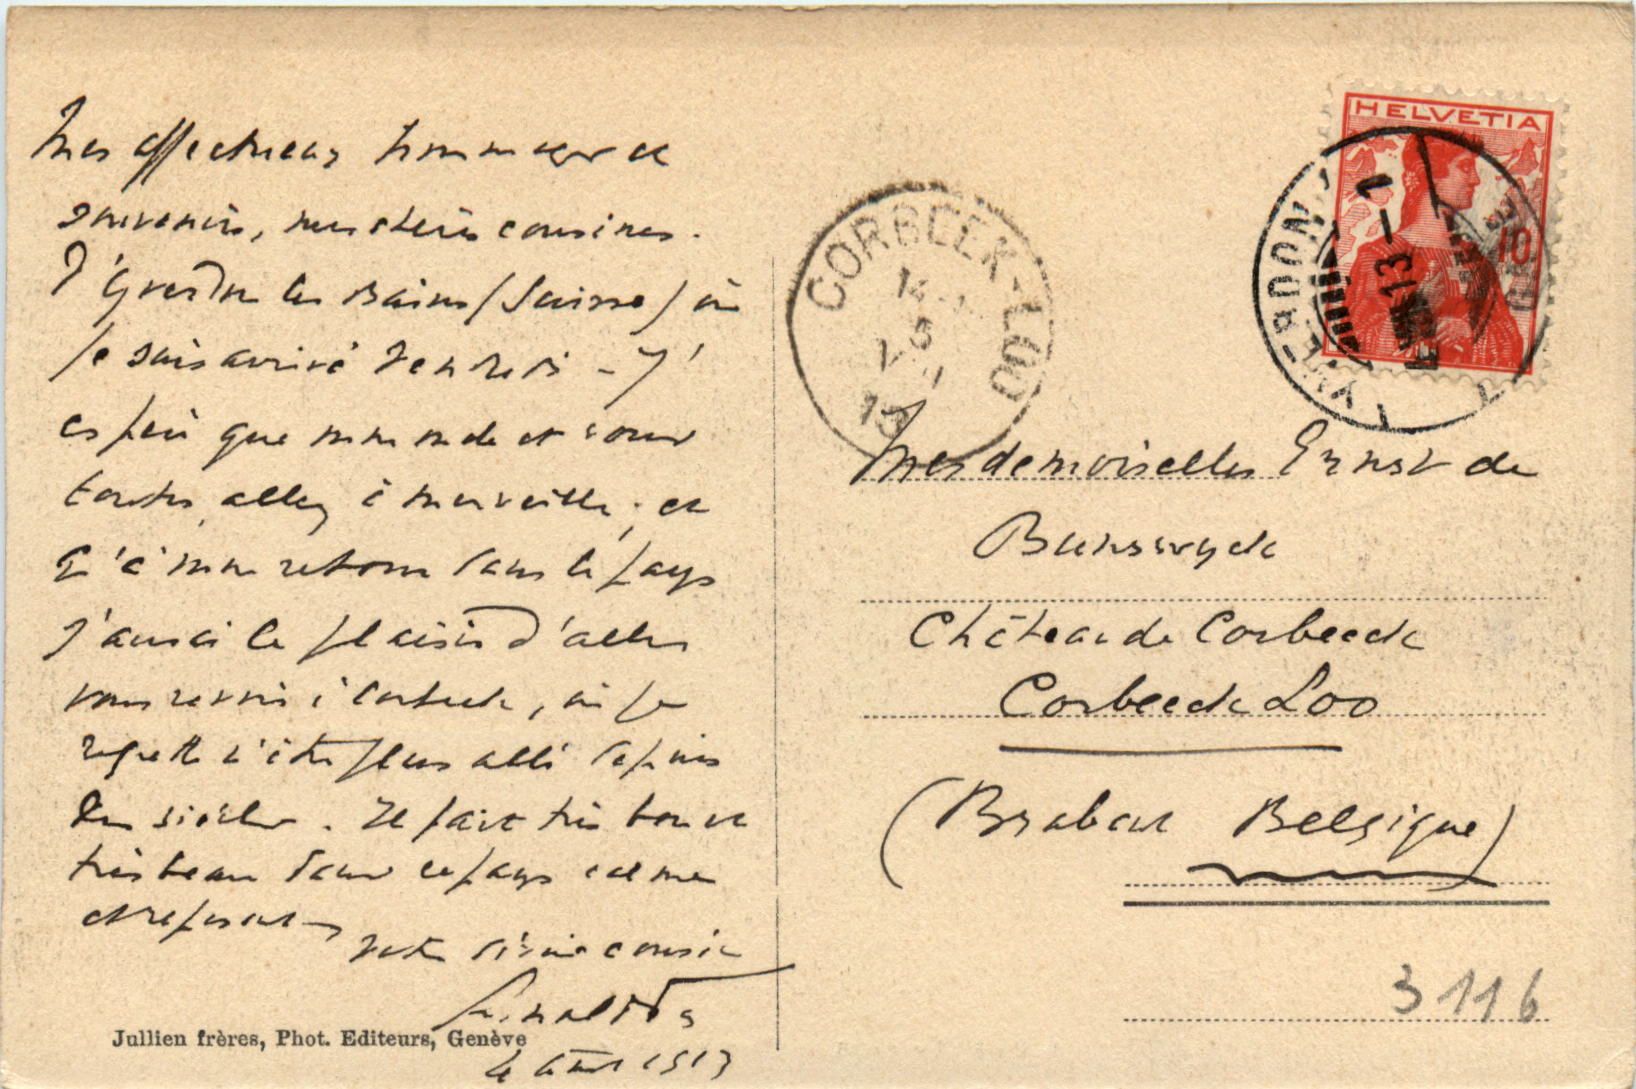 Mes affectueux hommages et
souvenirs, mes chères cousines.
d'Yverdon les Bains (Suisse) où
je suis arrivé vendredi - J'
espère que mon monde et vous
toutes, allez à merveille, et
qu'à mon retour dans le pays
j'aurai le plaisir d'aller
vous revoir à Corbeek, où je
regrette n'être plus allé depuis
des siècles. Il fait très bon et
très beau dans ce pays calme
et reposant
votre cousin
4 1913
Jullien frères, Phot. Editeurs, Genève
CORBEEK-LOO
14-
5
13
HELVETIA
10
YVERDON
13-1
Mesdemoiselles Ernst de
Bunswyck
Château de Corbeeck
Corbeeck Loo
(Brabant Belgique)
3116